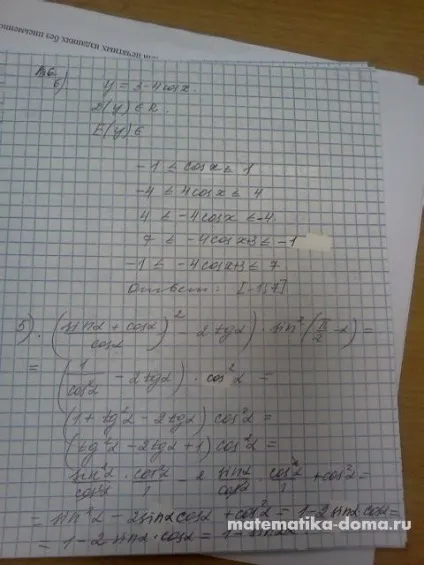 ой печатных изданиях без письменно
№6
б) y = 3-4cosx.
D(y) ∈ R.
E(y) ∈
-1 ≤ cosx ≤ 1
-4 ≤ 4cosx ≤ 4
4 ≤ -4cosx ≤ -4.
7 ≤ -4cosx+3 ≤ -1
-1 ≤ -4cosx+3 ≤ 7
ответ: [-1;7]
5). ((sinα + cosα / cosα)² - 2tgα) · sin²(π/2 - α) =
= (1/cos²α - 2tgα) · cos²α =
(1 + tg²α - 2tgα) cos²α =
(tg²α - 2tgα + 1) cos²α =
sin²α/cos²α · cos²α/1 - 2 sinα/cosα · cos²α/1 + cos²α =
= sin²α - 2sinα cosα + cos²α = 1 - 2sinα cosα =
= 1 - 2sinα · cosα = 1 - sin2α
matematika-doma.ru